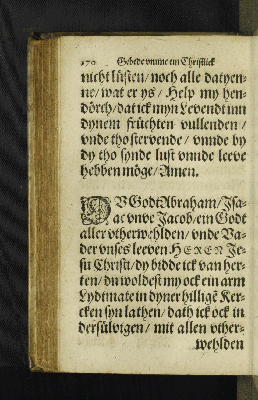 170 Gebede vmme ein Christlick
nicht lüsten / noch alle datyen-
ne / wat er ys / Help my hen-
dörch / dat ick myn Levendt inn
dynem früchten vullenden /
vnde tho stervende / vnde by
dy tho synde lust vnnde leeve
hebben möge / Amen.
DV Godt Abraham / Jsa-
ac vnve Jacob / ein Godt
aller vtherwehlden / vnde Va-
der vnses leeven HEREN Je-
su Christi / dy bidde ick van her-
ten / du woldest my ock ein arm
Lydtmate in dyner hilligē Ker-
cken syn lathen / dath ick ock in
dersülvigen / mit allen vther-
wehlden